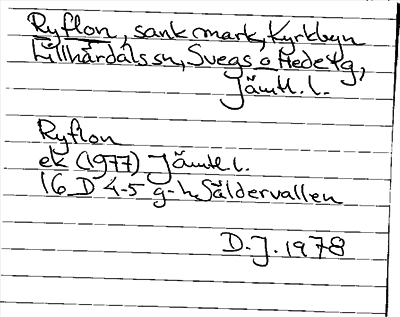 Ryflon, sank mark, Kyrkbyn
Lillhärdals sn, Svegs o Hede tg,
Jämtl. l.
Ryflon
ek (1977) Jämtl. l.
16 D 4-5 g-h, Säldervallen
D. J. 1978